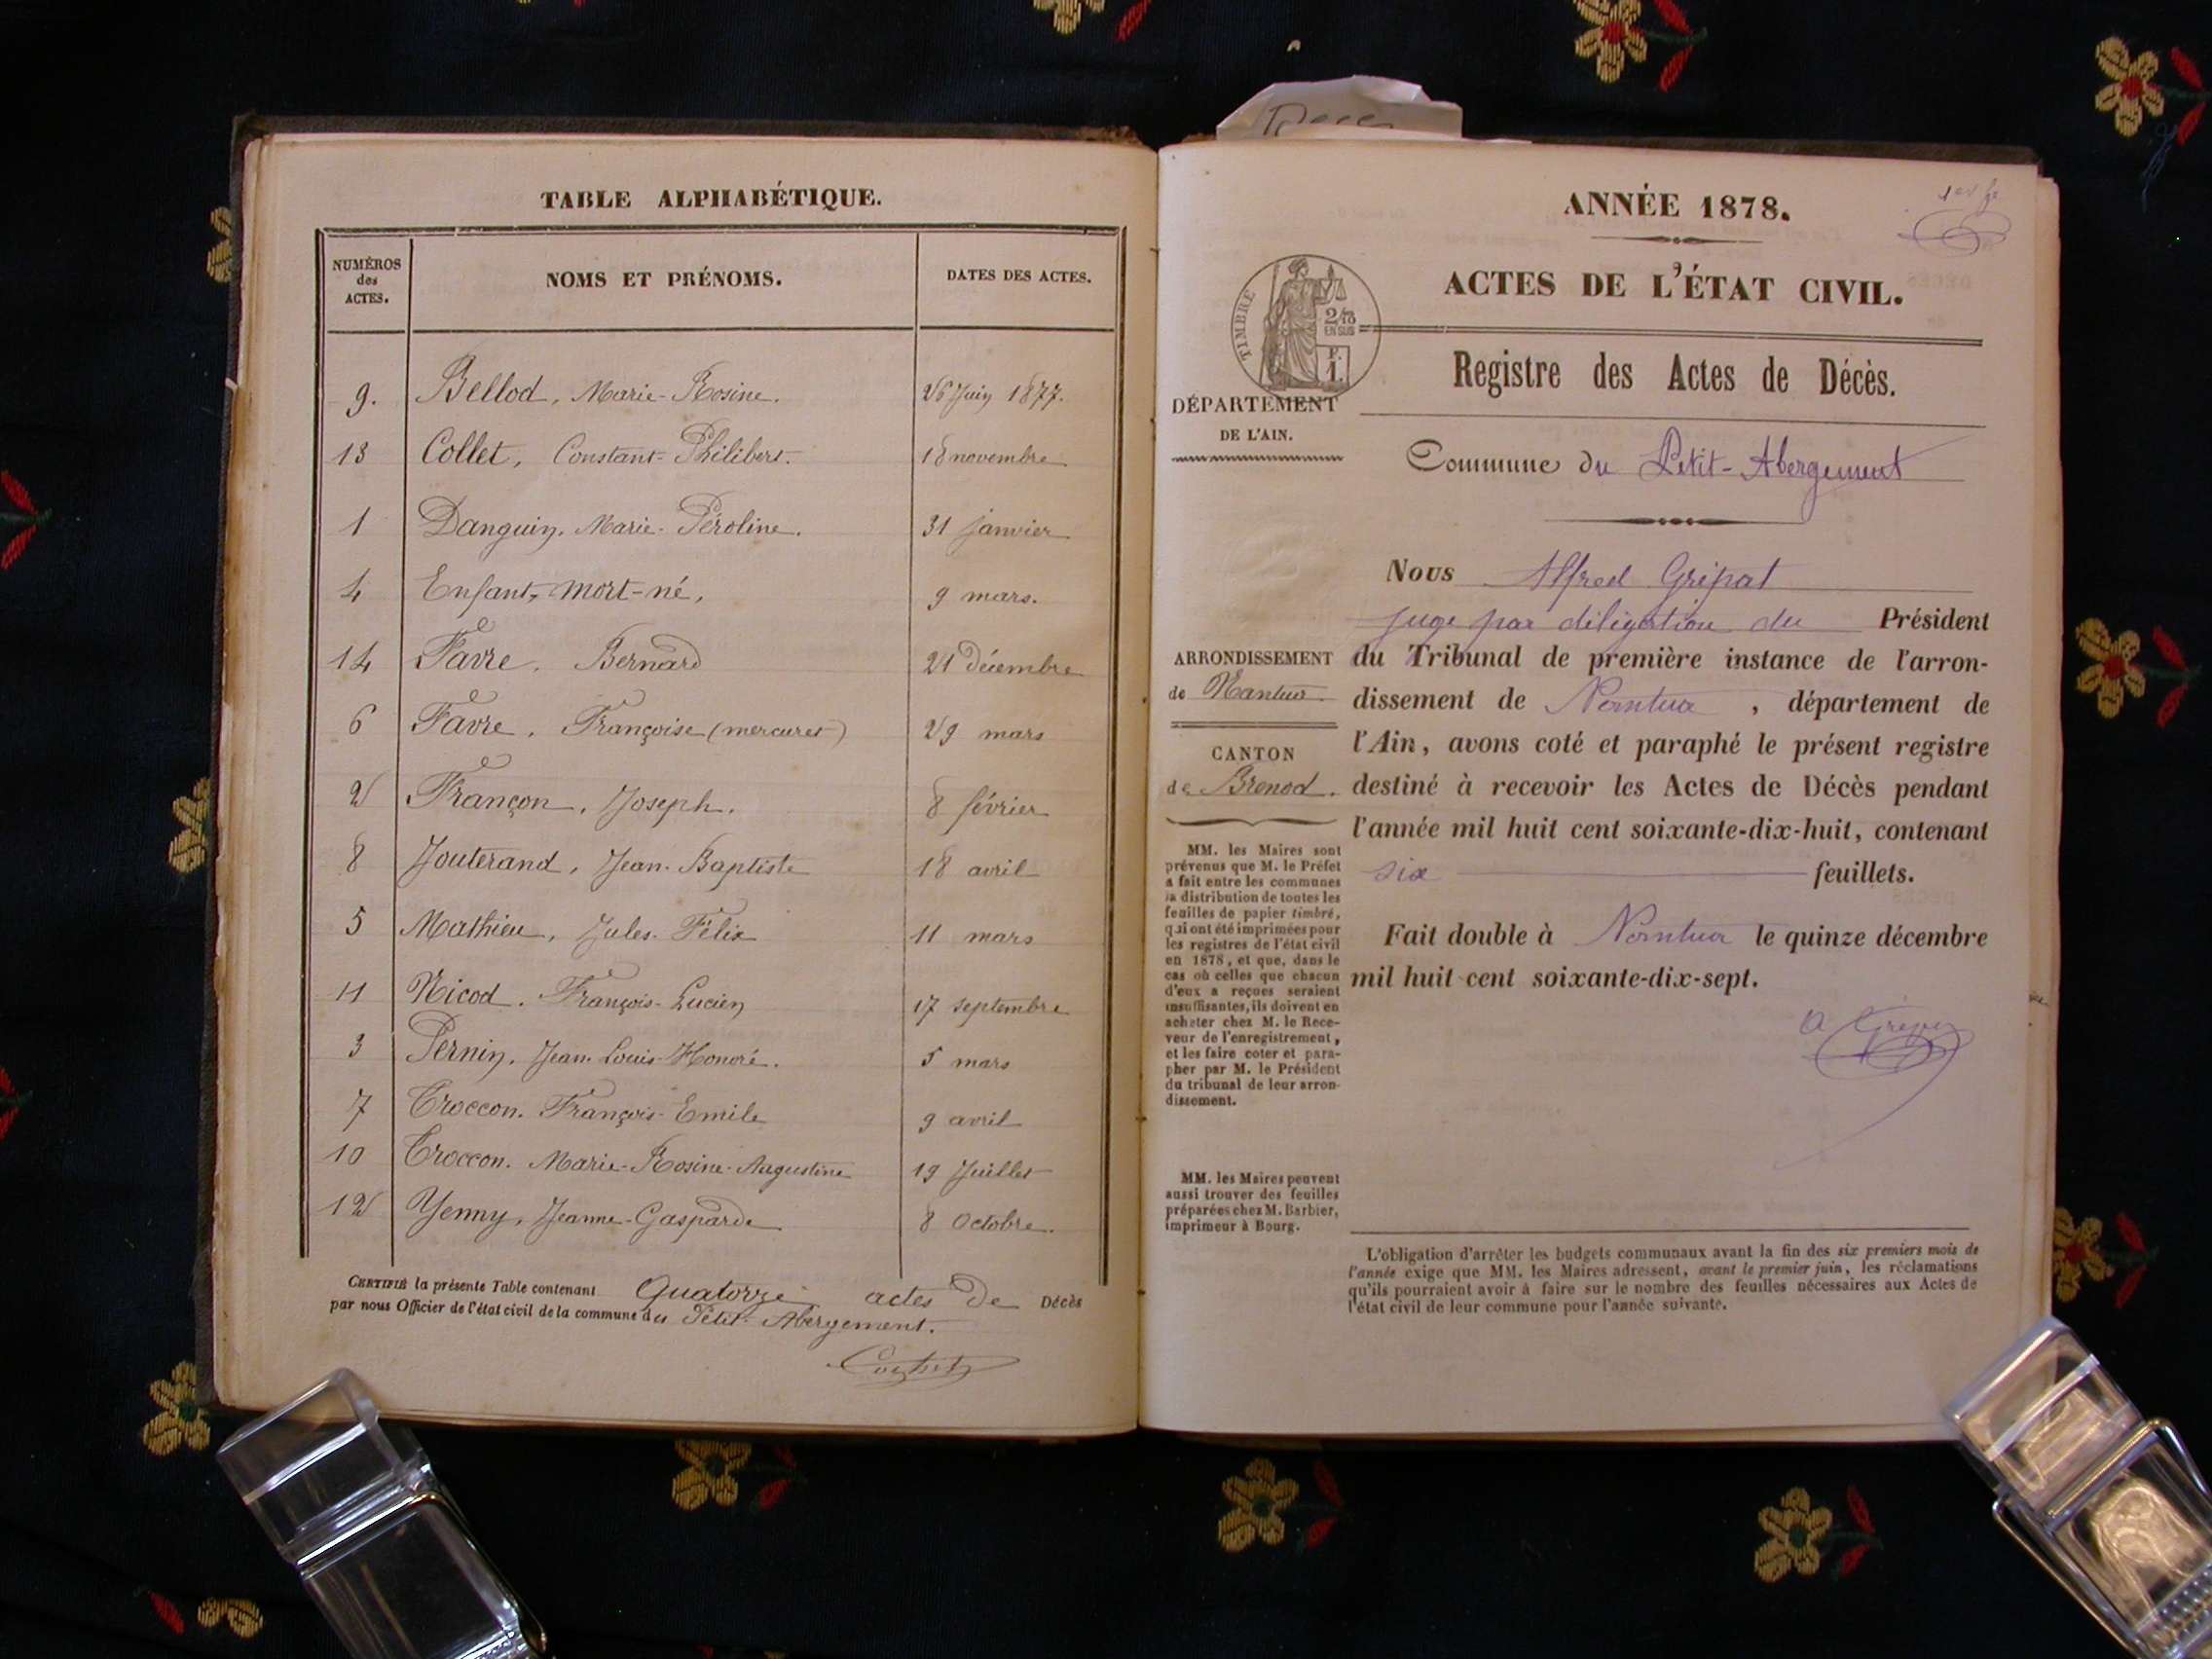 TABLE ALPHABÉTIQUE.
NUMÉROS des ACTES.
NOMS ET PRÉNOMS.
DATES DES ACTES.
9. Bellod, Marie-Rosine. 26 Juin 1877.
13 Collet, Constant-Philibert. 18 novembre
1 Danguin, Marie-Péroline. 31 janvier
4 Enfant, mort-né, 9 mars.
14 Favre, Bernard 21 Décembre
6 Favre, Françoise (mercuret) 29 mars
2 Françon, Joseph. 8 février
8 Jouterand, Jean-Baptiste 18 avril
5 Mathieu, Jules-Félix 11 mars
11 Nicod, François-Lucien 17 septembre
3 Pernin, Jean-Louis-Honoré. 5 mars
7 Troccon, François-Emile 9 avril
10 Troccon, Marie-Rosine-Augustine 19 Juillet
12 Yenny, Jeanne-Gasparde 8 Octobre.
CERTIFIÉ la présente Table contenant Quatorze actes de DÉCÈS
par nous Officier de l'état civil de la commune du Petit-Abergement.
Decès
ANNÉE 1878.
1er f
ACTES DE L'ÉTAT CIVIL.
TIMBRE
2/10
EN SUS
F.
1.
Registre des Actes de Décès.
DÉPARTEMENT
DE L'AIN.
Commune du Petit-Abergement
ARRONDISSEMENT
de Nantua
CANTON
de Brenod.
MM. les Maires sont
prévenus que M. le Préfet
a fait entre les communes
la distribution de toutes les
feuilles de papier timbré,
qui ont été imprimées pour
les registres de l'état civil
en 1878, et que, dans le
cas où celles que chacun
d'eux a reçues seraient
insuffisantes, ils doivent en
acheter chez M. le Rece-
veur de l'enregistrement,
et les faire coter et para-
pher par M. le Président
du tribunal de leur arron-
dissement.
MM. les Maires peuvent
aussi trouver des feuilles
préparées chez M. Barbier,
imprimeur à Bourg.
Nous Alfred Gripat
juge par déligation du Président
du Tribunal de première instance de l'arron-
dissement de Nantua, département de
l'Ain, avons coté et paraphé le présent registre
destiné à recevoir les Actes de Décès pendant
l'année mil huit cent soixante-dix-huit, contenant
six feuillets.
Fait double à Nantua le quinze décembre
mil huit cent soixante-dix-sept.
L'obligation d'arrêter les budgets communaux avant la fin des six premiers mois de
l'année exige que MM. les Maires adressent, avant le premier juin, les réclamations
qu'ils pourraient avoir à faire sur le nombre des feuilles nécessaires aux Actes de
l'état civil de leur commune pour l'année suivante.